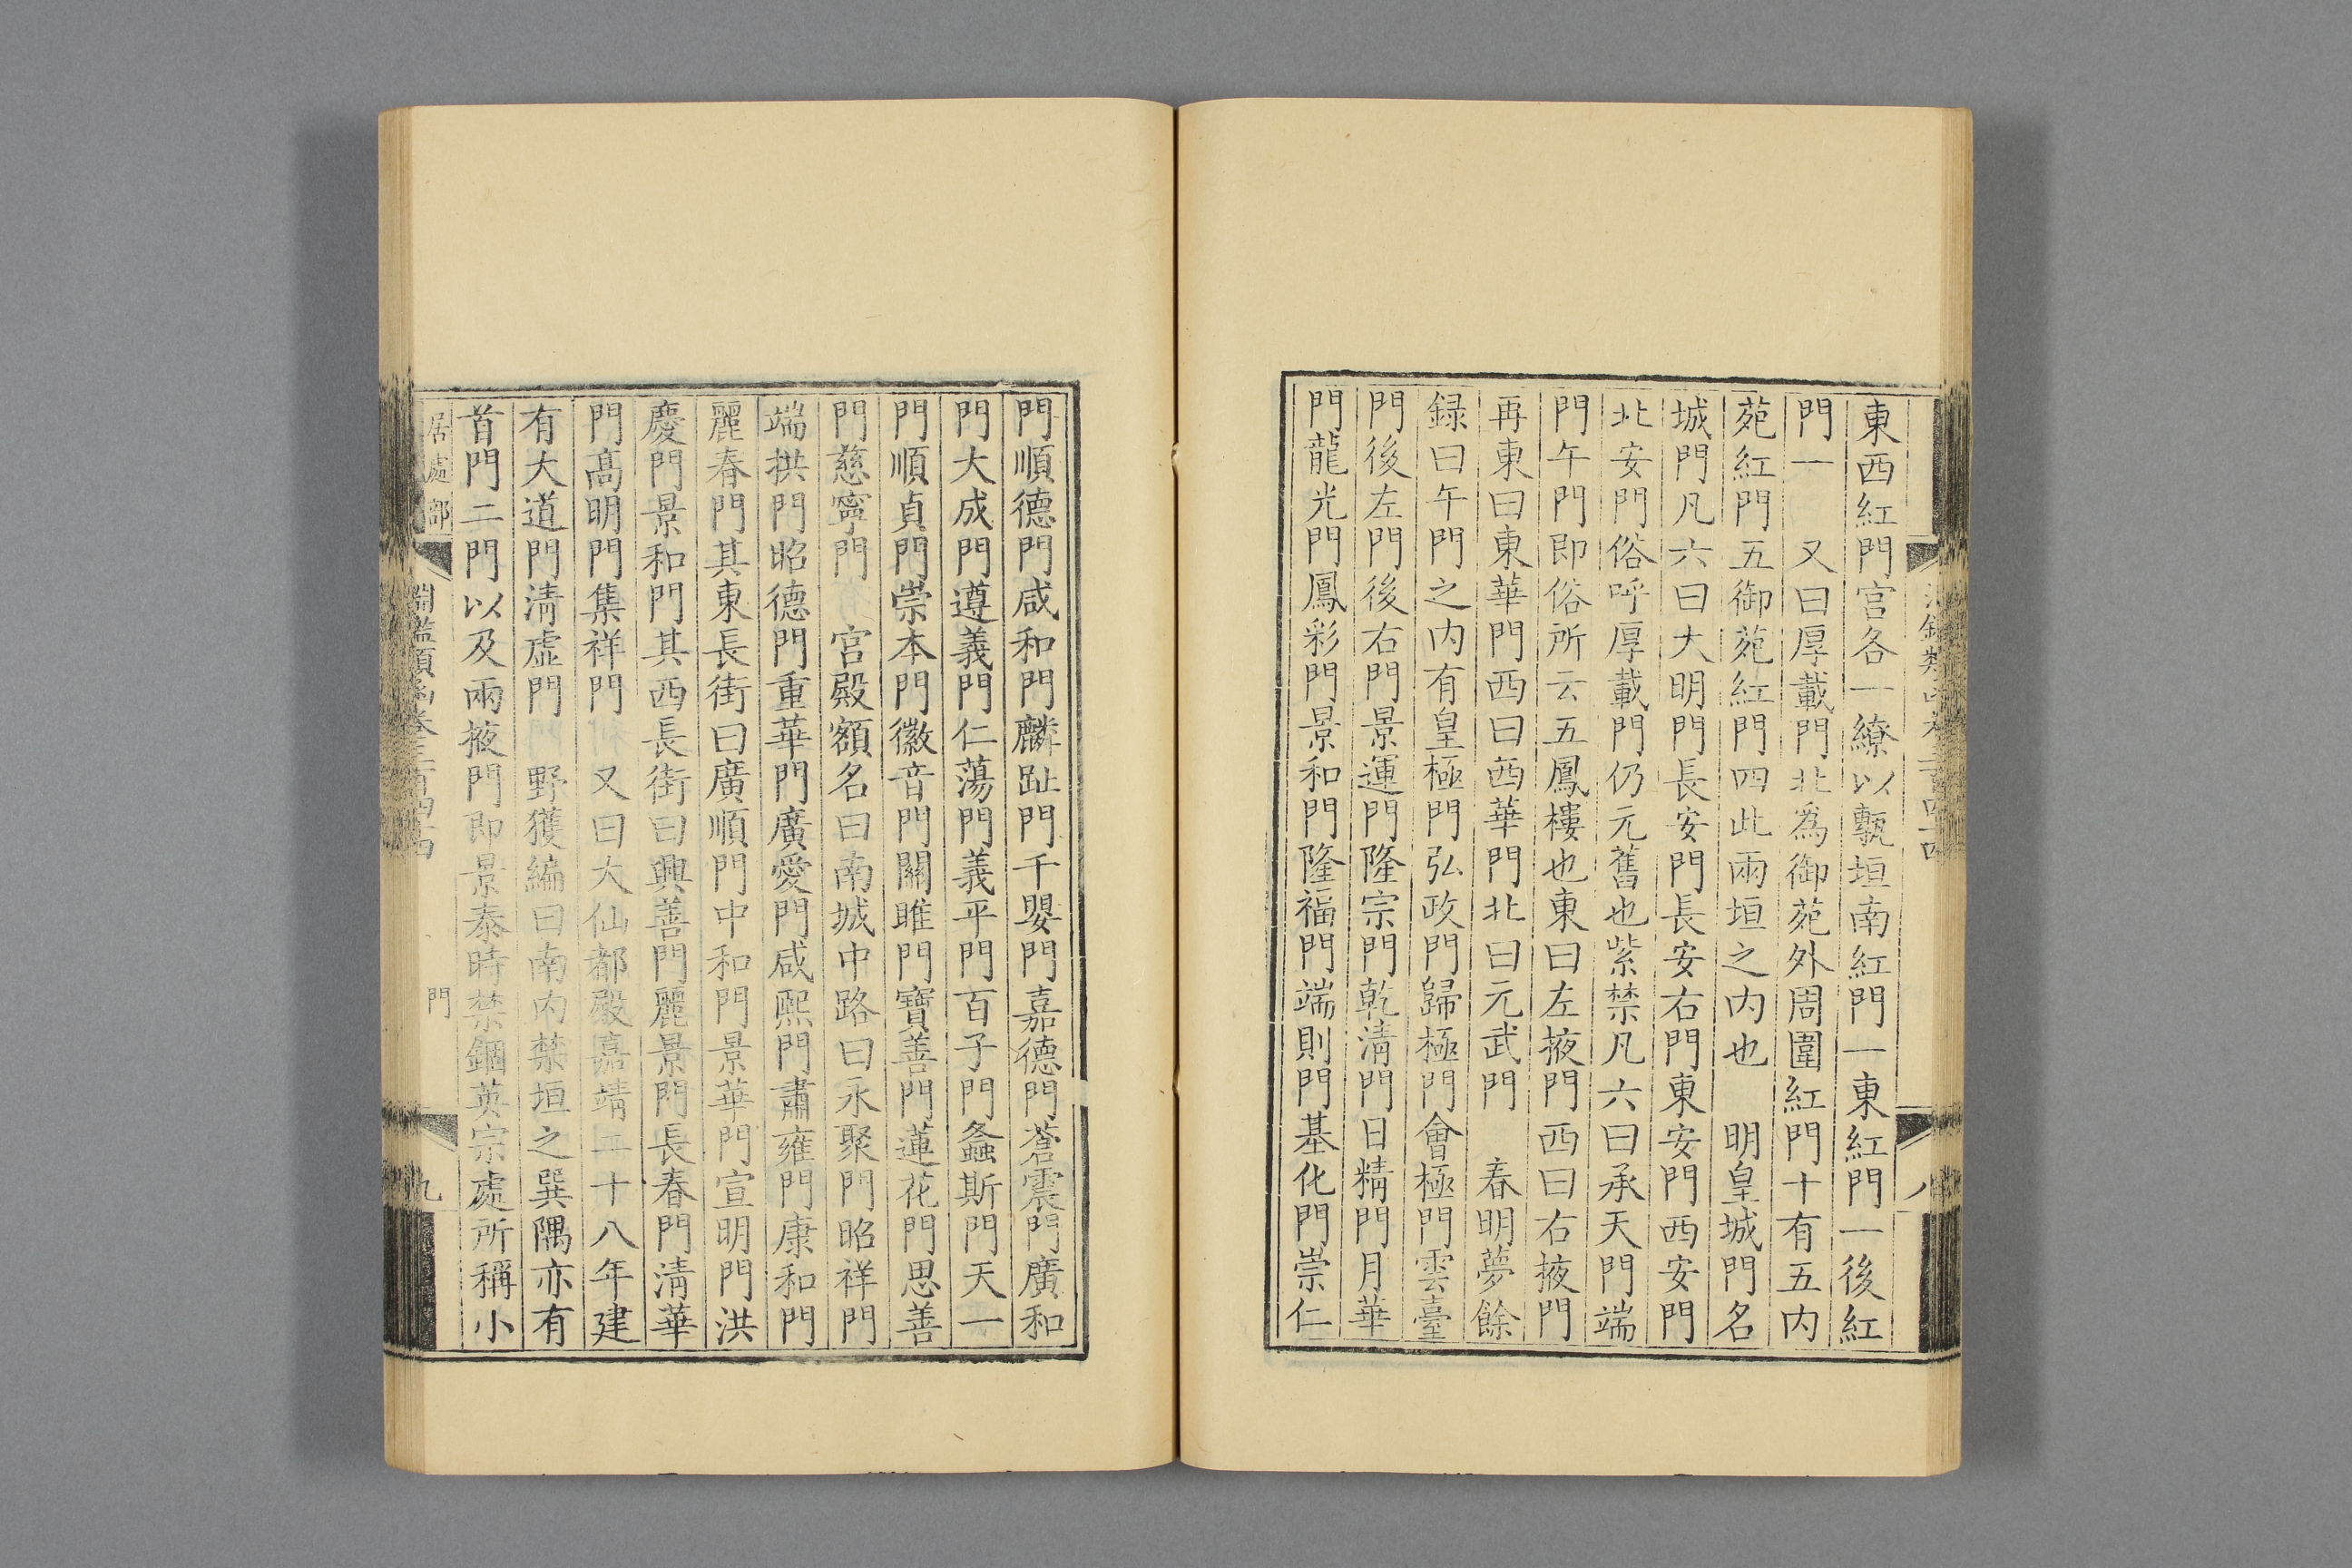 東西紅門宫各一繚以甎垣南紅門一東紅門一後紅
門一　又曰厚載門北為御苑外周圍紅門十有五内
苑紅門五御苑紅門四此兩垣之内也　明皇城門名
城門凡六曰大明門長安門長安右門東安門西安門
北安門俗呼厚載門仍元舊也紫禁凡六曰承天門端
門午門即俗所云五鳳樓也東曰左掖門西曰右掖門
再東曰東華門西曰西華門北曰元武門　春明夢餘
録曰午門之内有皇極門弘政門歸極門會極門雲臺
門後左門後右門景運門隆宗門乾清門日精門月華
門龍光門鳳彩門景和門隆福門端則門基化門崇仁
門順德門咸和門麟趾門千嬰門嘉德門蒼震門廣和
門大成門遵義門仁蕩門義平門百子門螽斯門天一
門順貞門崇本門徽音門關雎門寶善門蓮花門思善
門慈寧門　宫殿額名曰南城中路曰永聚門昭祥門
端拱門昭德門重華門廣愛門咸熙門肅雍門康和門
麗春門其東長街曰廣順門中和門景華門宣明門洪
慶門景和門其西長街曰興善門麗景門長春門清華
門高明門集祥門　又曰大仙都殿嘉靖二十八年建
有大道門清虛門　野獲編曰南内禁垣之巽隅亦有
首門二門以及兩掖門即景泰時禁錮英宗處所稱小
居處部
淵鑑類函卷三百四十四
門
九